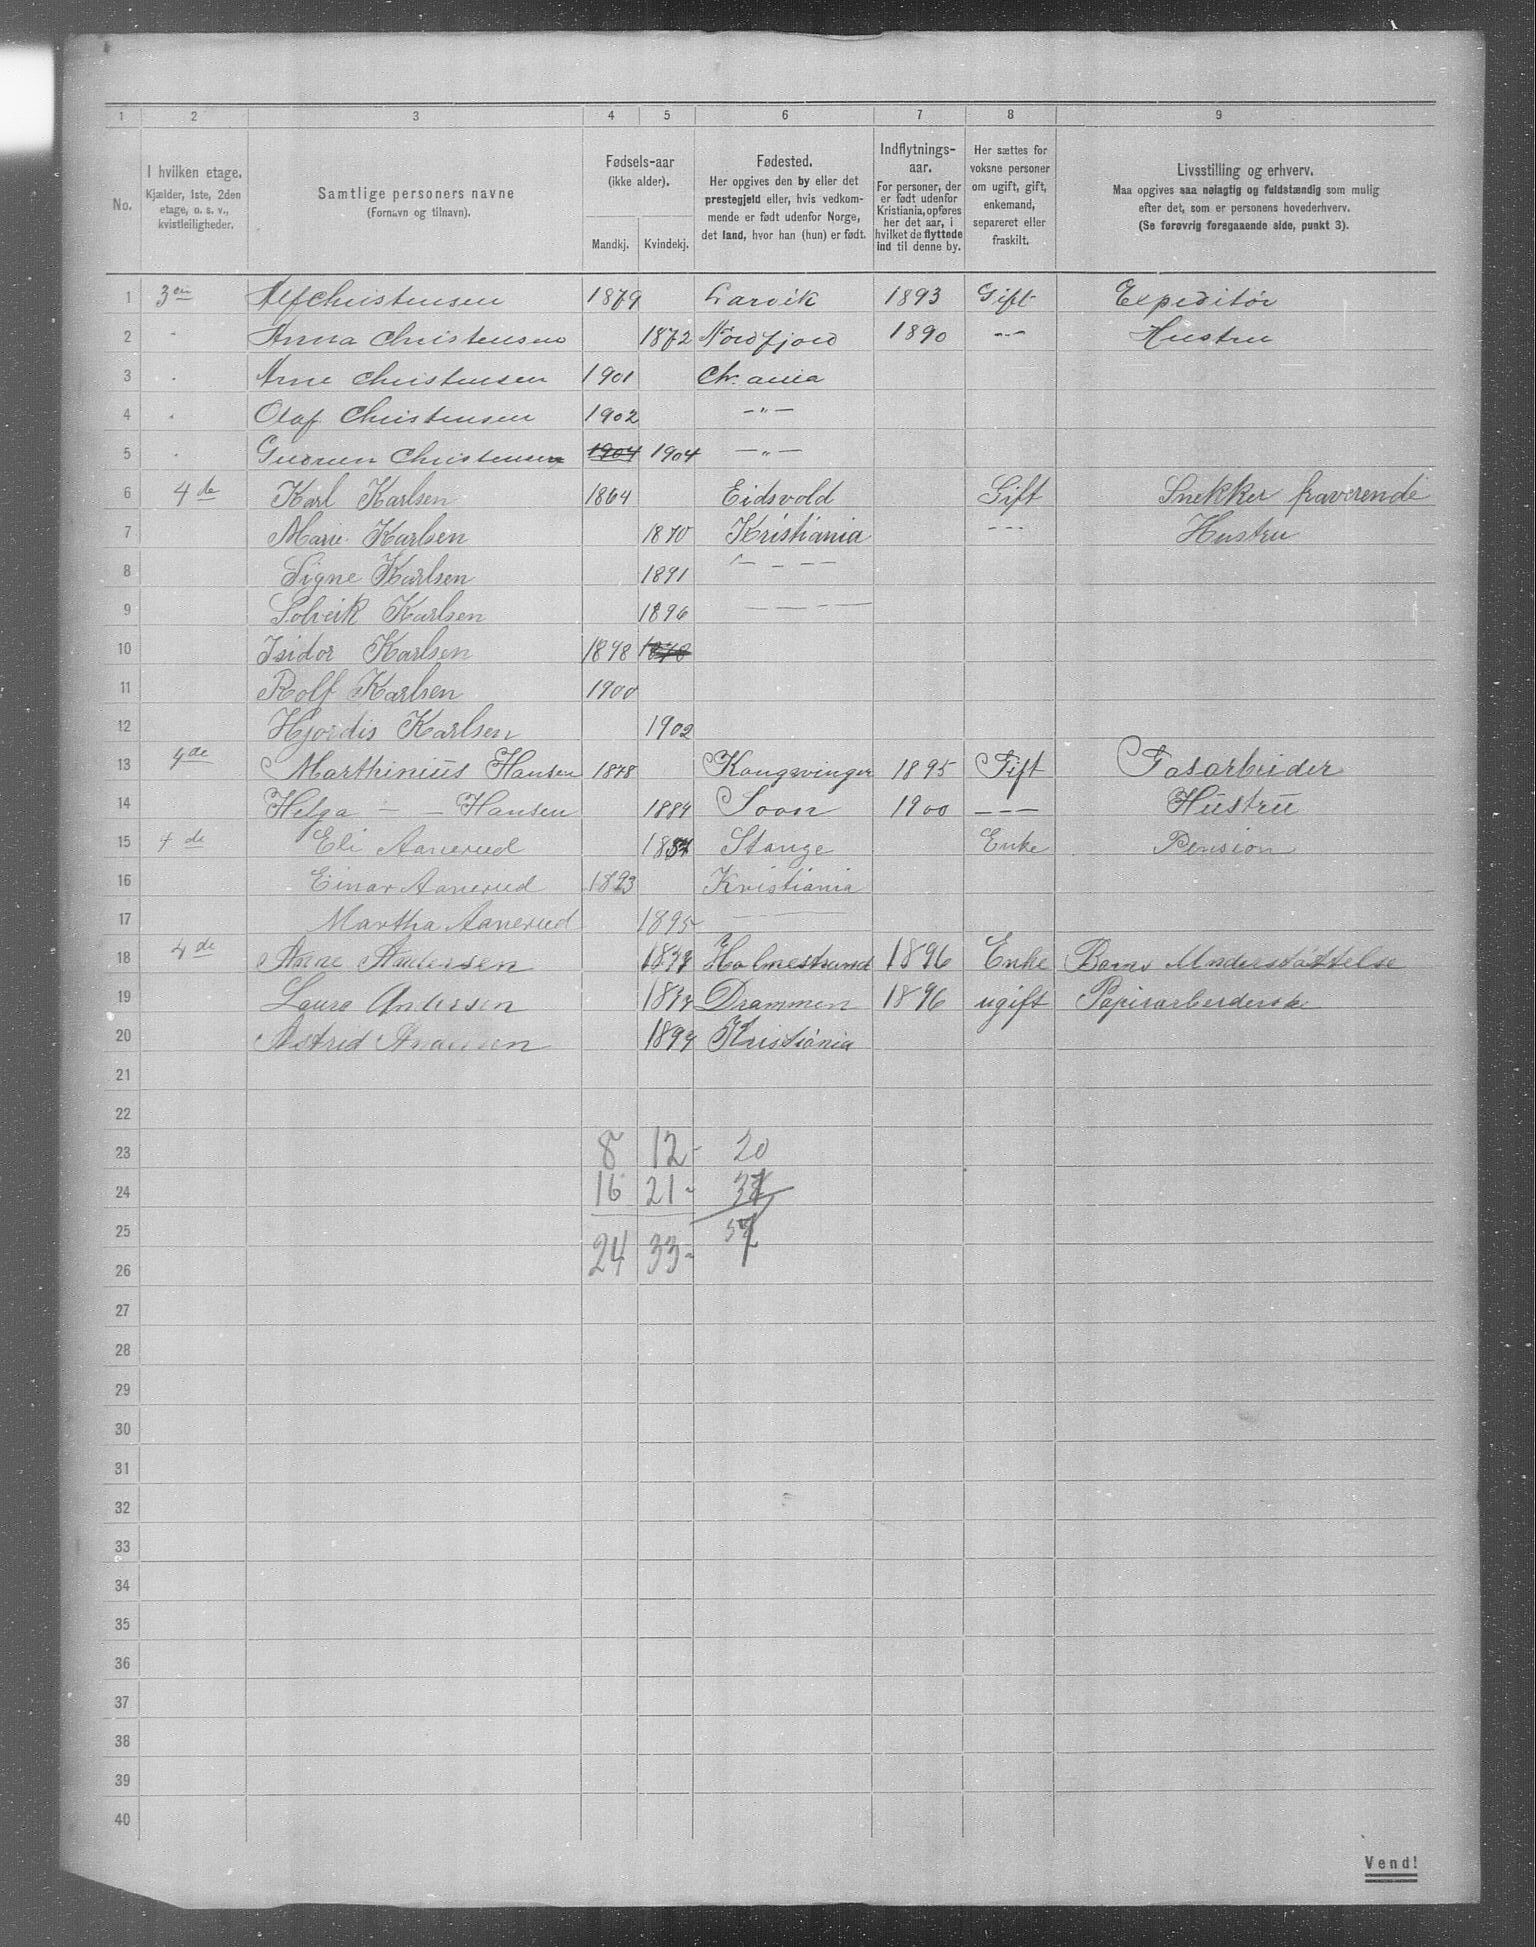 1 2 3 4 5 6 7 8 9
No.
I hvilken etage.
Kjælder, 1ste, 2den
etage, o. s. v.,
kvistleiligheder.
Samtlige personers navne
(Fornavn og tilnavn).
Fødsels-aar
(ikke alder).
Mandkj. Kvindekj.
Fødested.
Her opgives den by eller det
prestegjeld eller, hvis vedkom-
mende er født udenfor Norge,
det land, hvor han (hun) er født.
Indflytnings-
aar.
For personer, der
er født udenfor
Kristiania, opføres
her det aar, i
hvilket de flyttede
ind til denne by.
Her sættes for
voksne personer
om ugift, gift,
enkemand,
separeret eller
fraskilt.
Livsstilling og erhverv.
Maa opgives saa nøiagtig og fuldstændig som mulig
efter det, som er personens hovederhverv.
(Se forøvrig foregaaende side, punkt 3).
1 3die Alf Christensen 1879 Larvik 1893 Gift Expeditør
2 " Anna Christensen 1872 Nordfjord 1890 -"- Hustru
3 " Arne Christensen 1901 Chr.ania
4 " Olaf Christensen 1902 —"—
5 " Gudrun Christensen 1904 1904 —"—
6 4de Karl Karlsen 1864 Eidsvold Gift Snekker fraværende
7 Marie Karlsen 1870 Kristiania --- Hustru
8 Signe Karlsen 1891 — - — —
9 Solveik Karlsen 1896 — — — —
10 Isidor Karlsen 1898
11 Rolf Karlsen 1900
12 Hjordis Karlsen 1902
13 4de Marthinius Hansen 1878 Kongsvinger 1895 Gift Gasarbeider
14 Helga — — Hansen 1884 Soon 1900 — — — Hustru
15 4de Eli Aanerud Stange Enke Pension
16 Einar Aanerud 1893 Kristiania
17 Martha Aanerud 1895 — — —
18 4de Anne Andersen Holmestrand 1896 Enke Understøttelse
19 Laura Andersen Drammen 1896 ugift Papirarbeiderske
20 Astrid Kristiania
21
22
23 8 12- 20
24 16 21- 37
25
26 24 33- 57
27
28
29
30
31
32
33
34
35
36
37
38
39
40
Vend!